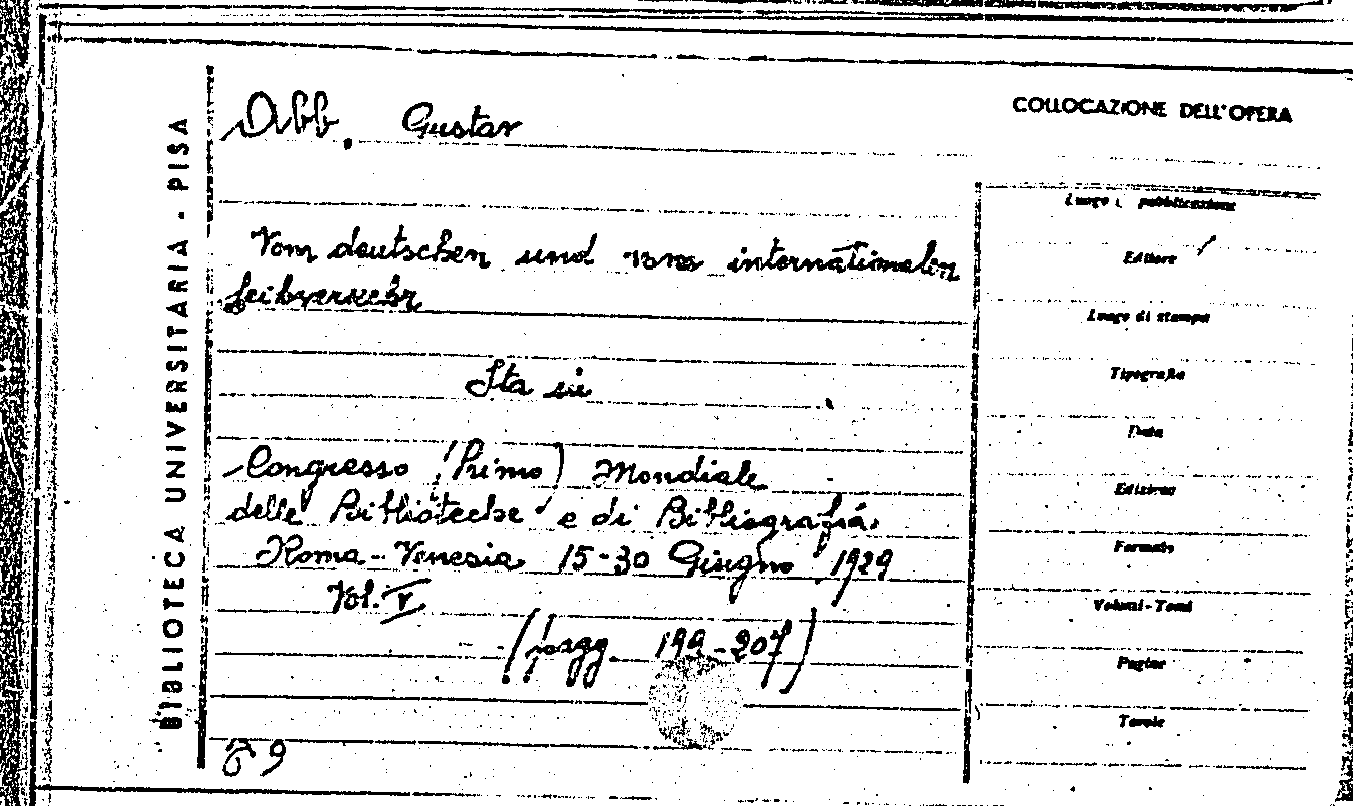 BIBLIOTECA UNIVERSITARIA - PISA
COLLOCAZIONE DELL'OPERA
Abb, Gustav
Vom deutschen und vom internationalen
Leihverkehr
Sta in
Congresso (Primo) Mondiale
delle Biblioteche e di Bibliografia.
Roma - Venezia 15-30 Giugno 1929
Vol. V
(pagg. 199-207)
69
Luogo di pubblicazione
Editore
Luogo di stampa
Tipografia
Data
Edizione
Formato
Volumi - Tomi
Pagine
Tavole